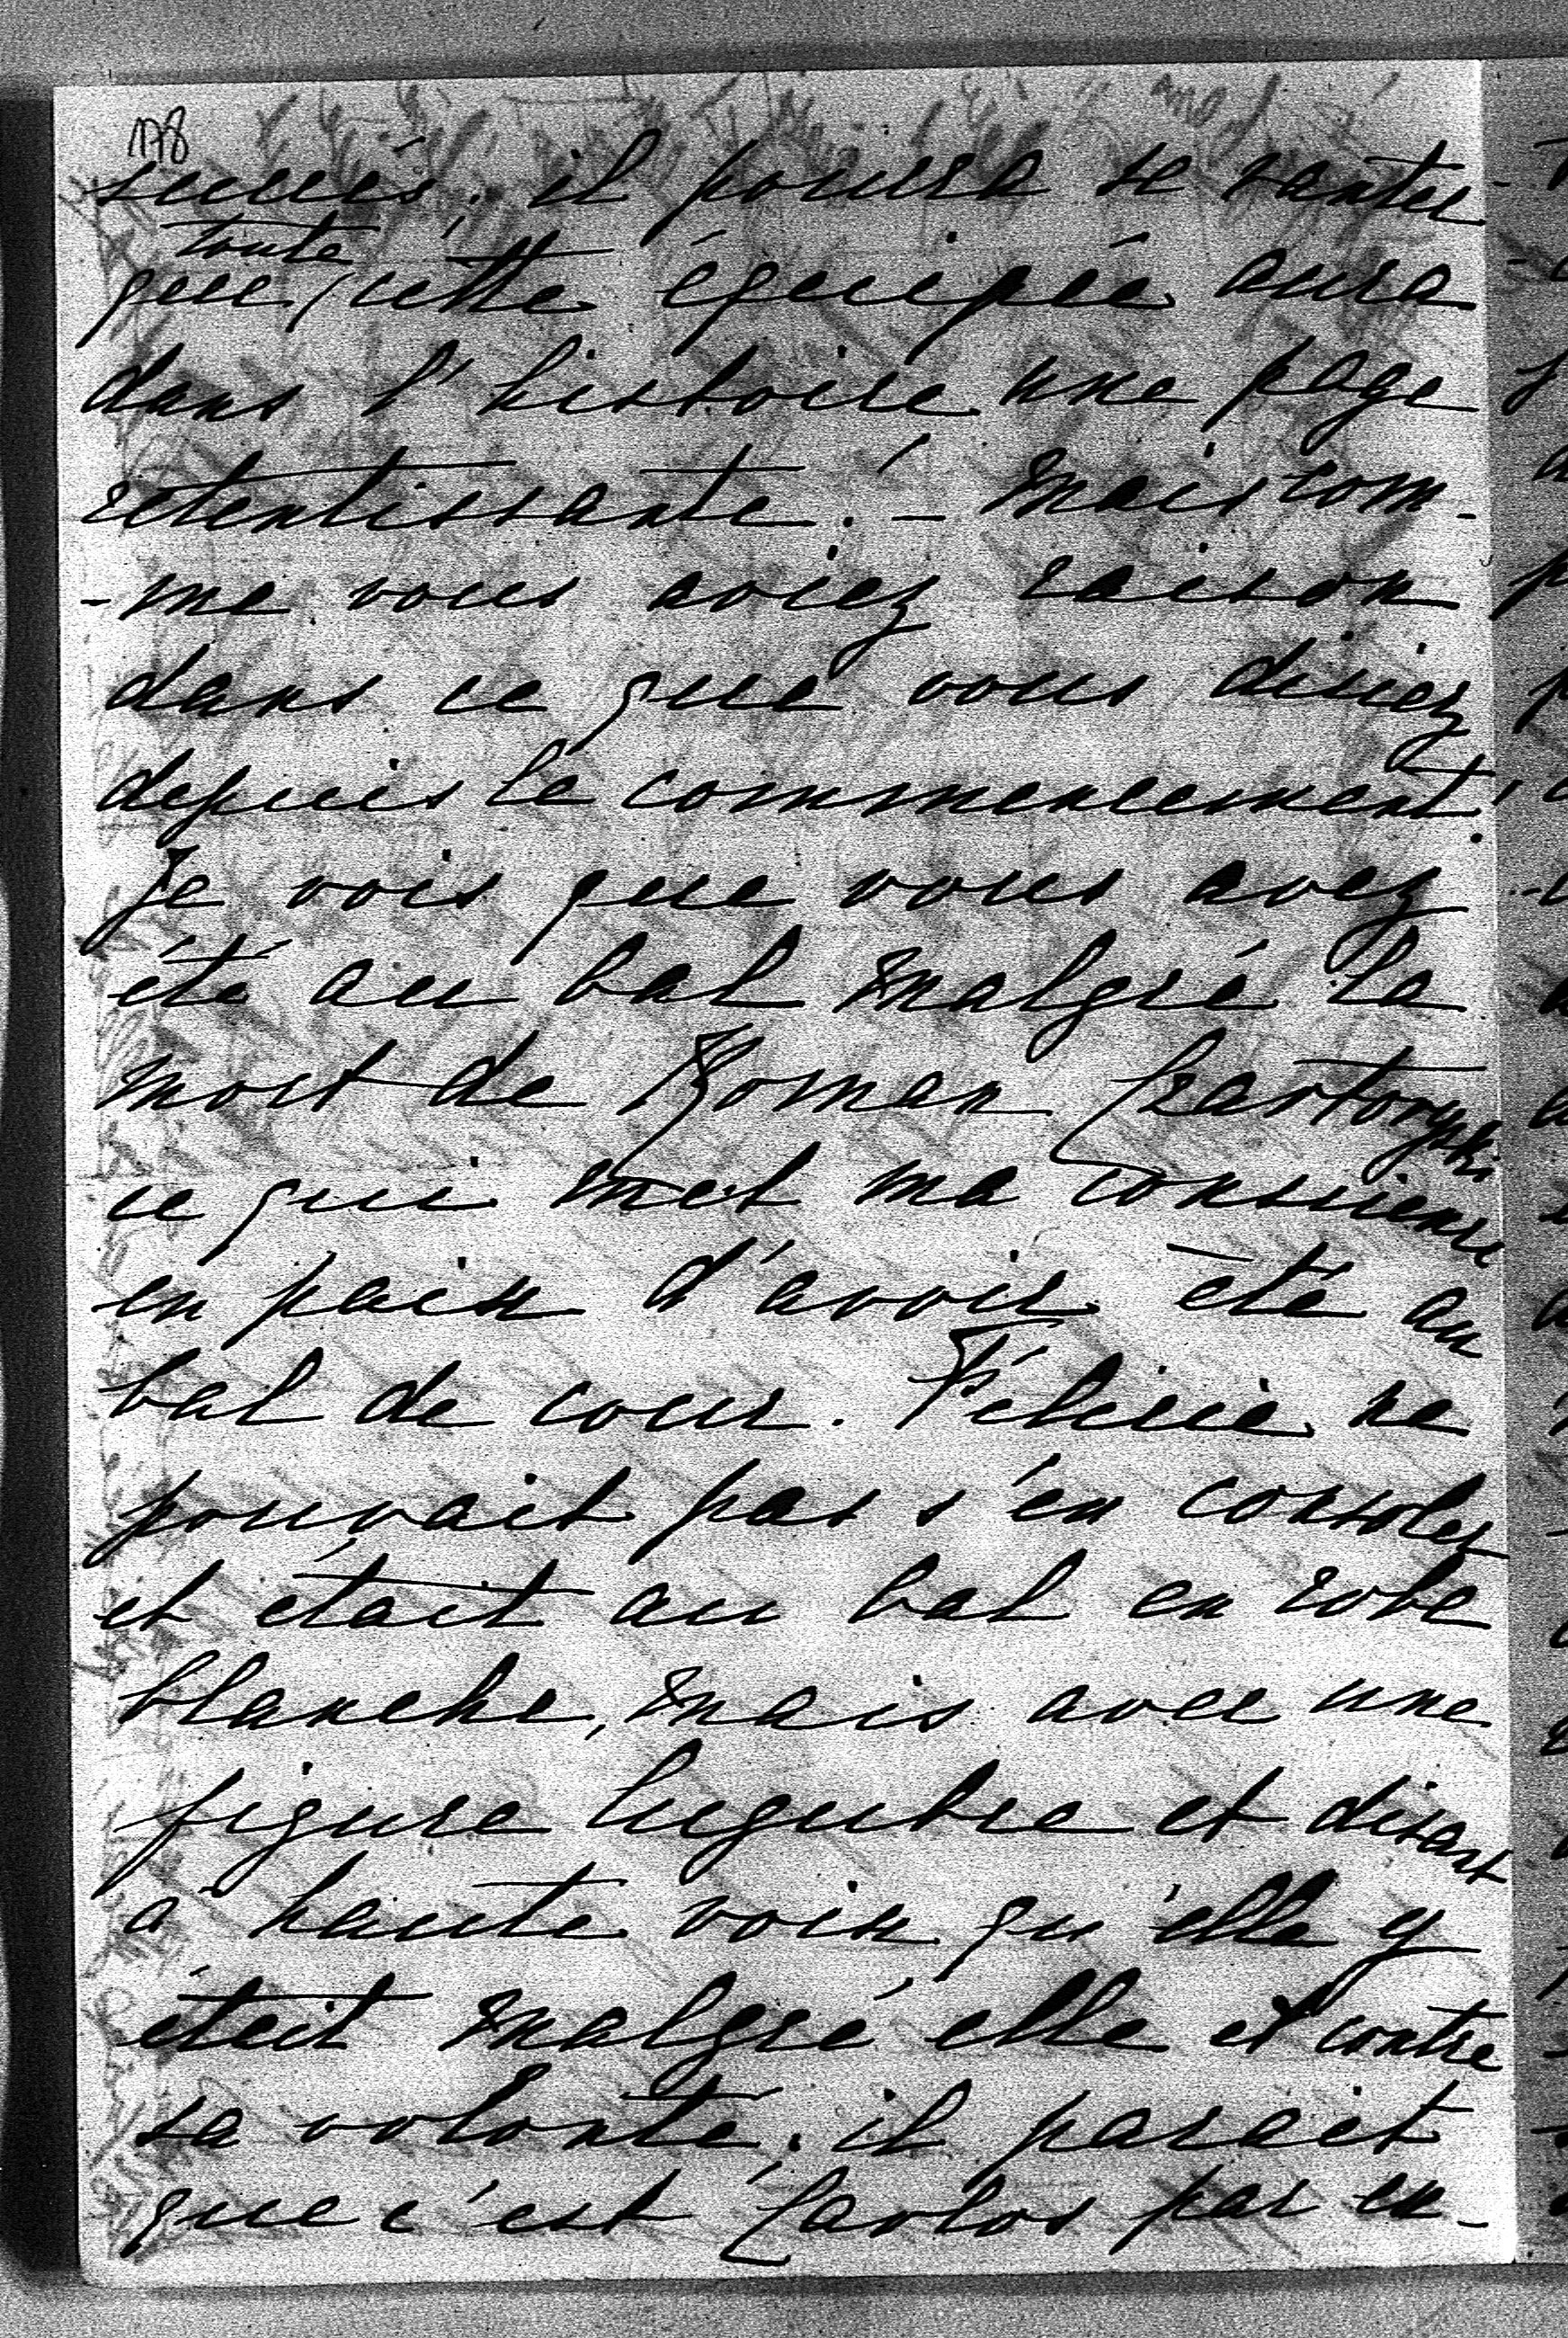 178
succès. il pourra se vanter
que toute cette équipée aura
dans l'histoire une page
retentissante. – Mais com-
-me vous aviez raison
dans ce que vous disiez
depuis le commencement!
Je vois que vous avez
été au bal malgré la
mort de Roman Czartoryski
ce qui met ma conscience
en paix d'avoir été au
bal de cour. Félicie ne
pouvait pas s'en consoler
et était au bal en robe
blanche, mais avec une
figure lugubre et disant
à haute voix qu'elle y
était malgré elle et contre
sa volonté. il parait
que c'est Carlos par en-